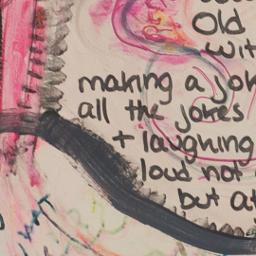 Old
wit
making a jok
all the jokes
+ laughing
loud not
but at